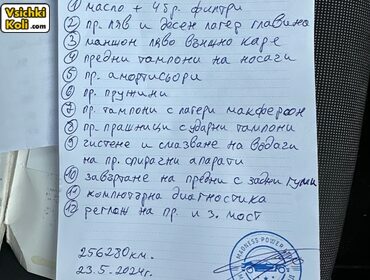 Vsichki
Koli.com
1 масло + 4бр. филтри
2 пр. ляв и десен лагер главина
3 маншон ляво външно каре
4 предни тампони на носачи
5 пр. амортисьори
6 пр. пружини
7 пр. тампони с лагери макферсон
8 пр. прашници с ударни тампони
9 чистене и смазване на водачи
на пр. спирачни апарати
10 завъртане на предни с задни гуми
11 компютърна диагностика
12 реглаж на пр. и з. мост
256280км.
23.5.2024г.
MADNESS POWER